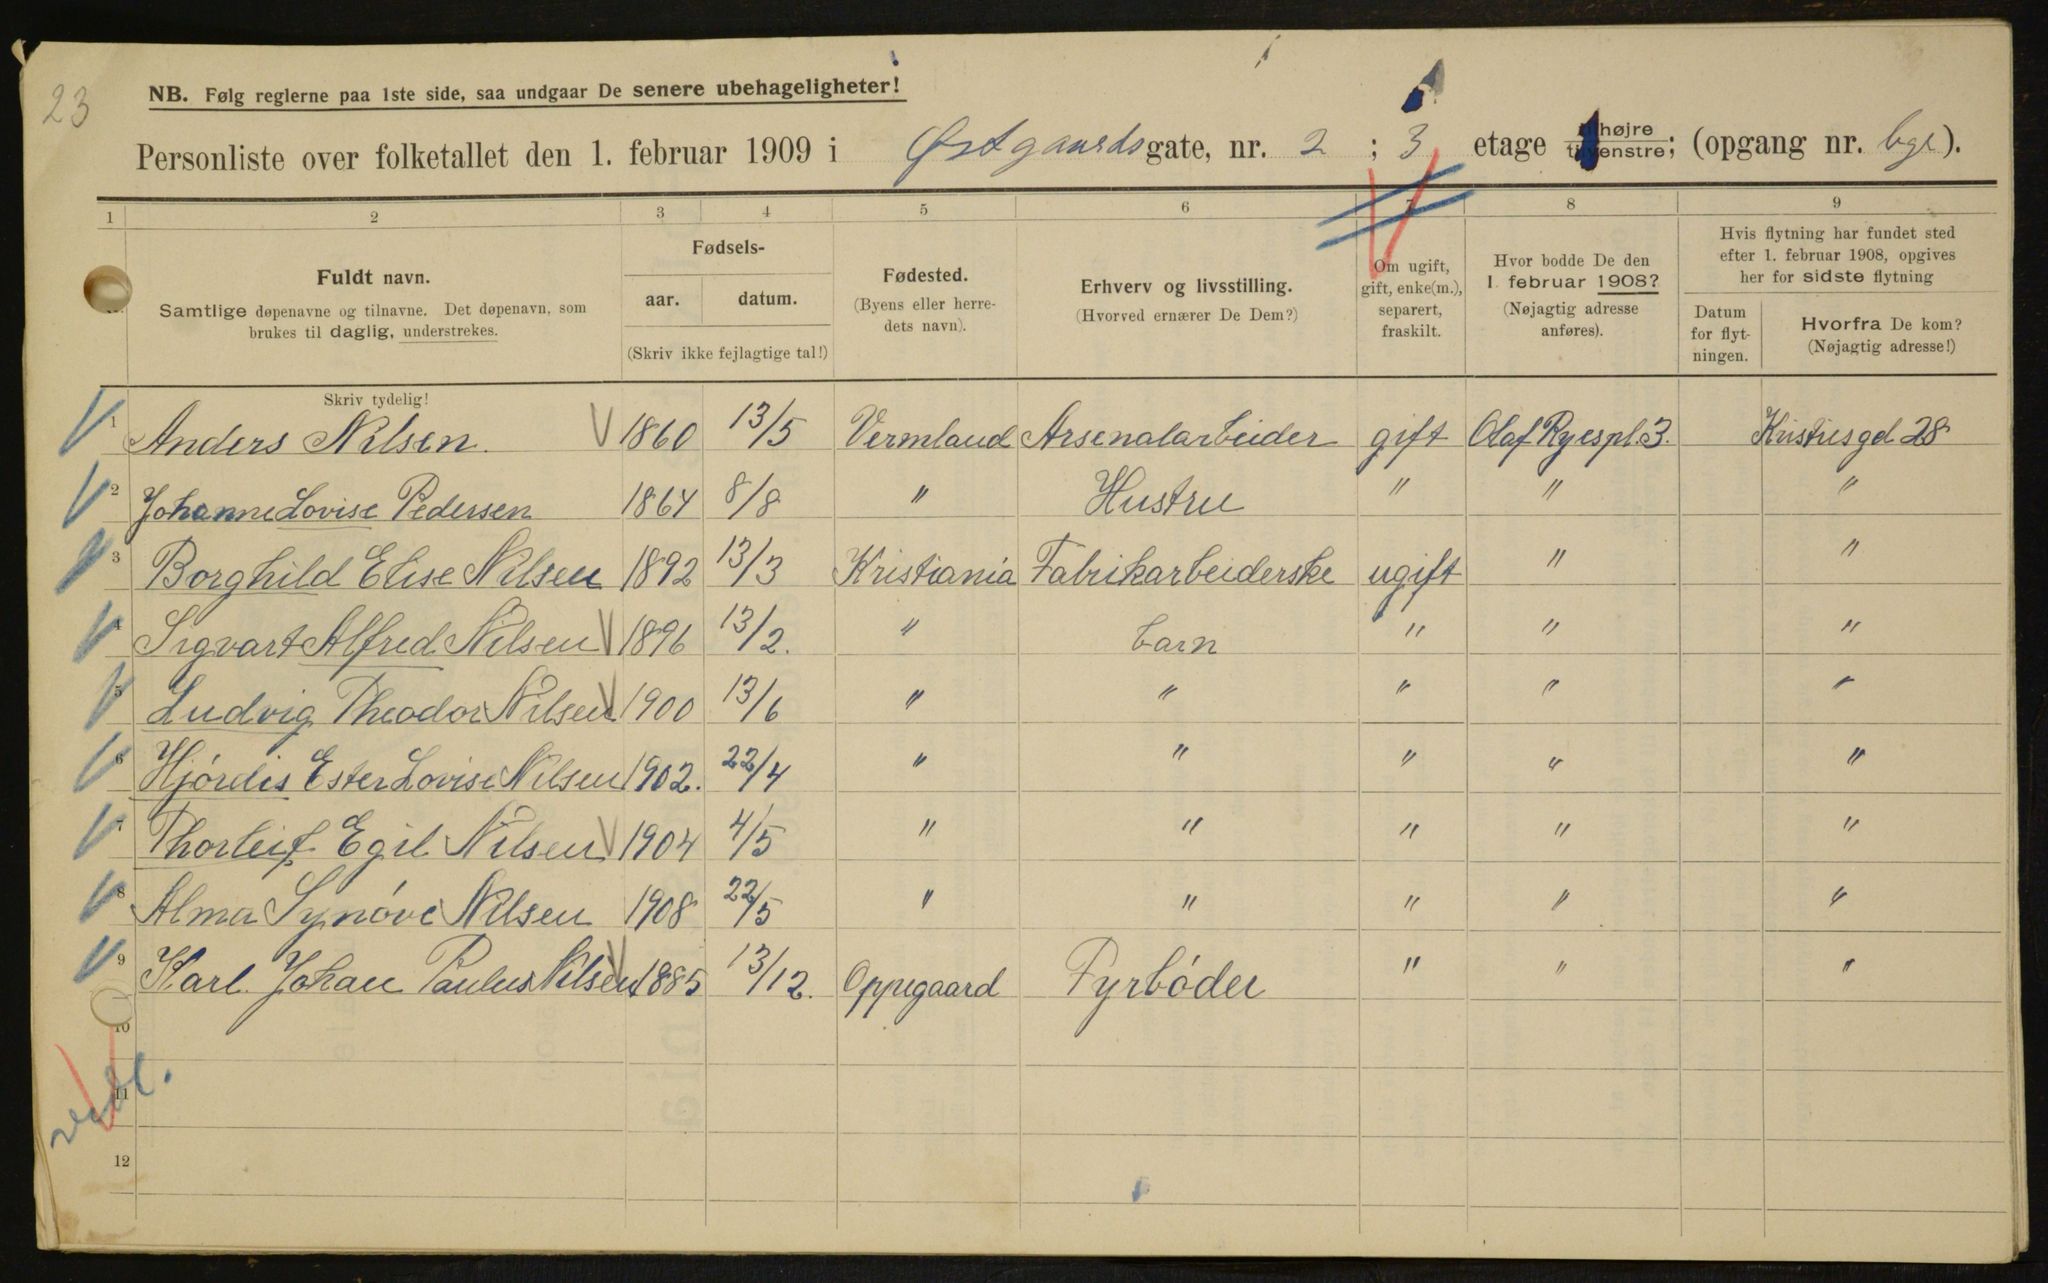 23
NB. Følg reglerne paa 1ste side, saa undgaar De senere ubehageligheter!
Personliste over folketallet den 1. februar 1909 i Østgaardsgate, nr. 2 ; 3 etage til højre til venstre; (opgang nr. bgl).
1 2 3 4 5 6 7 8 9
Fuldt navn.
Samtlige døpenavne og tilnavne. Det døpenavn, som
brukes til daglig, understrekes.
Fødsels-
aar. datum.
(Skriv ikke fejlagtige tal!)
Fødested.
(Byens eller herre-
dets navn).
Erhverv og livsstilling.
(Hvorved ernærer De Dem?)
Om ugift,
gift, enke(m.),
separert,
fraskilt.
Hvor bodde De den
1. februar 1908?
(Nøjagtig adresse
anføres).
Hvis flytning har fundet sted
efter 1. februar 1908, opgives
her for sidste flytning
Datum
for flyt-
ningen.
Hvorfra De kom?
(Nøjagtig adresse!)
Skriv tydelig!
1 Anders Nilsen. 1860 13/5 Vermland Arsenalarbeider gift Olaf Ryespl. 3. Kristiesgd 28
2 Johanne Lovise Pedersen 1864 8/8 " Hustru " " "
3 Borghild Elise Nilsen 1892 13/3 Kristiania Fabrikarbeiderske ugift " "
4 Sigvart Alfred Nilsen 1896 13/2. " barn " " "
5 Ludvig Theodor Nilsen 1900 13/6 " " " " "
6 Hjórdis Ester Lovise Nilsen 1902. 22/4 " " " " "
7 Thorleif Egil Nilsen 1904 4/5 " " " " "
8 Alma Synóve Nilsen 1908 22/5 " " " " "
9 Karl. Johan Paulus Nilsen 1885 13/12. Oppegaard Fyrbóder " " "
10
11
12